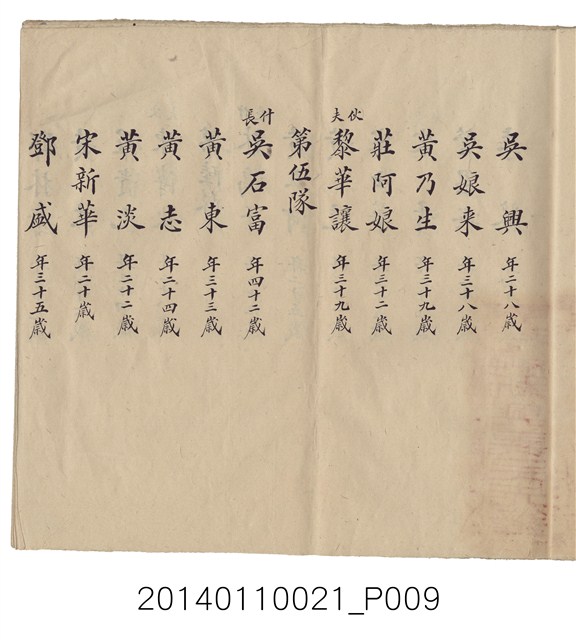 吳興 年二十八歲
吳娘来 年三十八歲
黃乃生 年三十九歲
莊阿娘 年三十二歲
伙夫 黎華讓 年三十九歲
第伍隊
什長 吳石富 年四十二歲
黃東 年三十三歲
黃志 年二十四歲
黃淡 年二十二歲
宋新華 年二十歲
鄧盛 年三十五歲
20140110021_P009